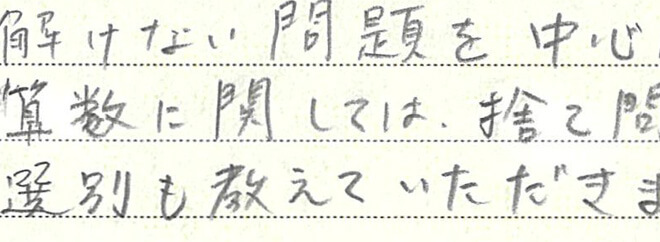 解けない問題を中心
算数に関しては、捨て問
選別も教えていただきま